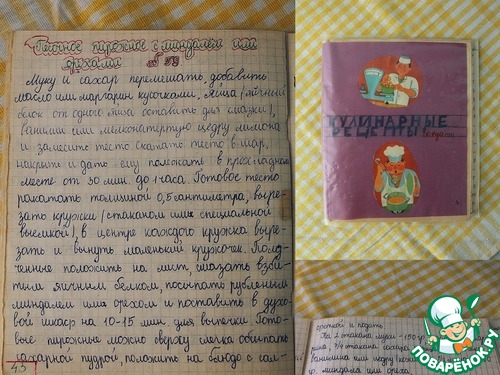 Песочное пирожное с миндалем или
орехами
Муку и сахар перемешать, добавить
масло или маргарин кусочками, яйца (яичный
белок от одного яйца оставить для смазки),
ванилин или мелконатертую цедру лимона
и замесите тесто скатать тесто в шар,
накрыть и дать ему полежать в прохладном
месте от 30 мин. до 1 часа. Готовое тесто
раскатать толщиной 0,5 сантиметра, выре-
зать кружки (стаканом или специальной
выемкой), в центре каждого кружка выре-
зать и вынуть маленький кружочек. Полу-
ченные положить на лист, смазать взби-
тым яичным белком, посыпать рубленым
миндалем или орехом и поставить в духо-
вой шкаф на 10-15 мин. для выпечки. Гото-
вые пирожные можно сверху слегка обсыпать
сахарной пудрой, положить на блюдо с сал-
43
КУЛИНАРНЫЕ
РЕЦЕПТЫ
феткой и подать.
На 2 стакана муки - 150
3/4 стакана сахара
ванилина или цедру
миндаля или ореха
ПОВАРЁНОК.РУ